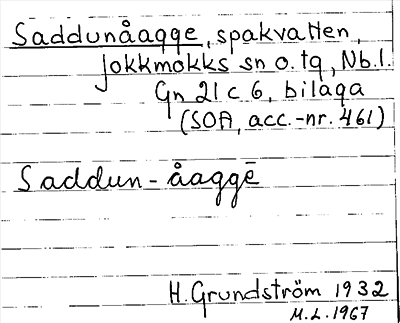 Saddunåagge, spakvatten,
Jokkmokks sn o. tg, Nb.l.
Gn 21 c 6, bilaga
(SOA, acc.-nr. 461)
Saddun-åaggē
H. Grundström 1932
M.L. 1967